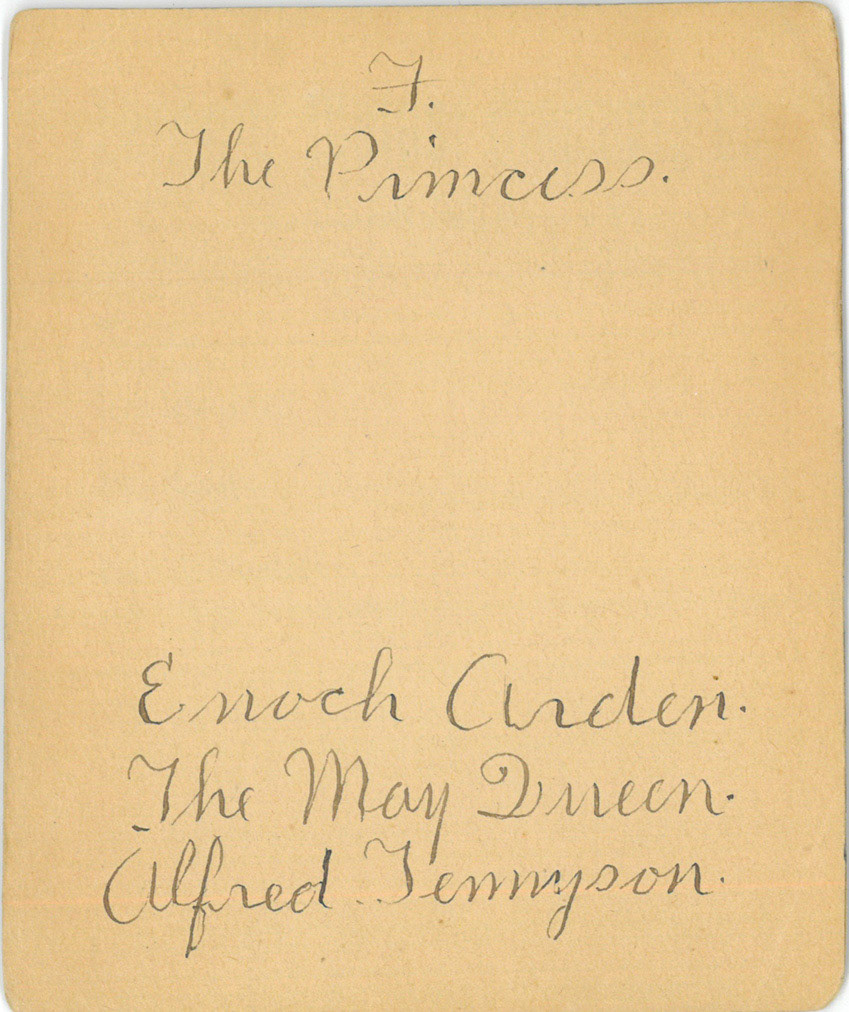 F.
The Princess.
Enoch Arden.
The May Queen.
Alfred Tennyson.